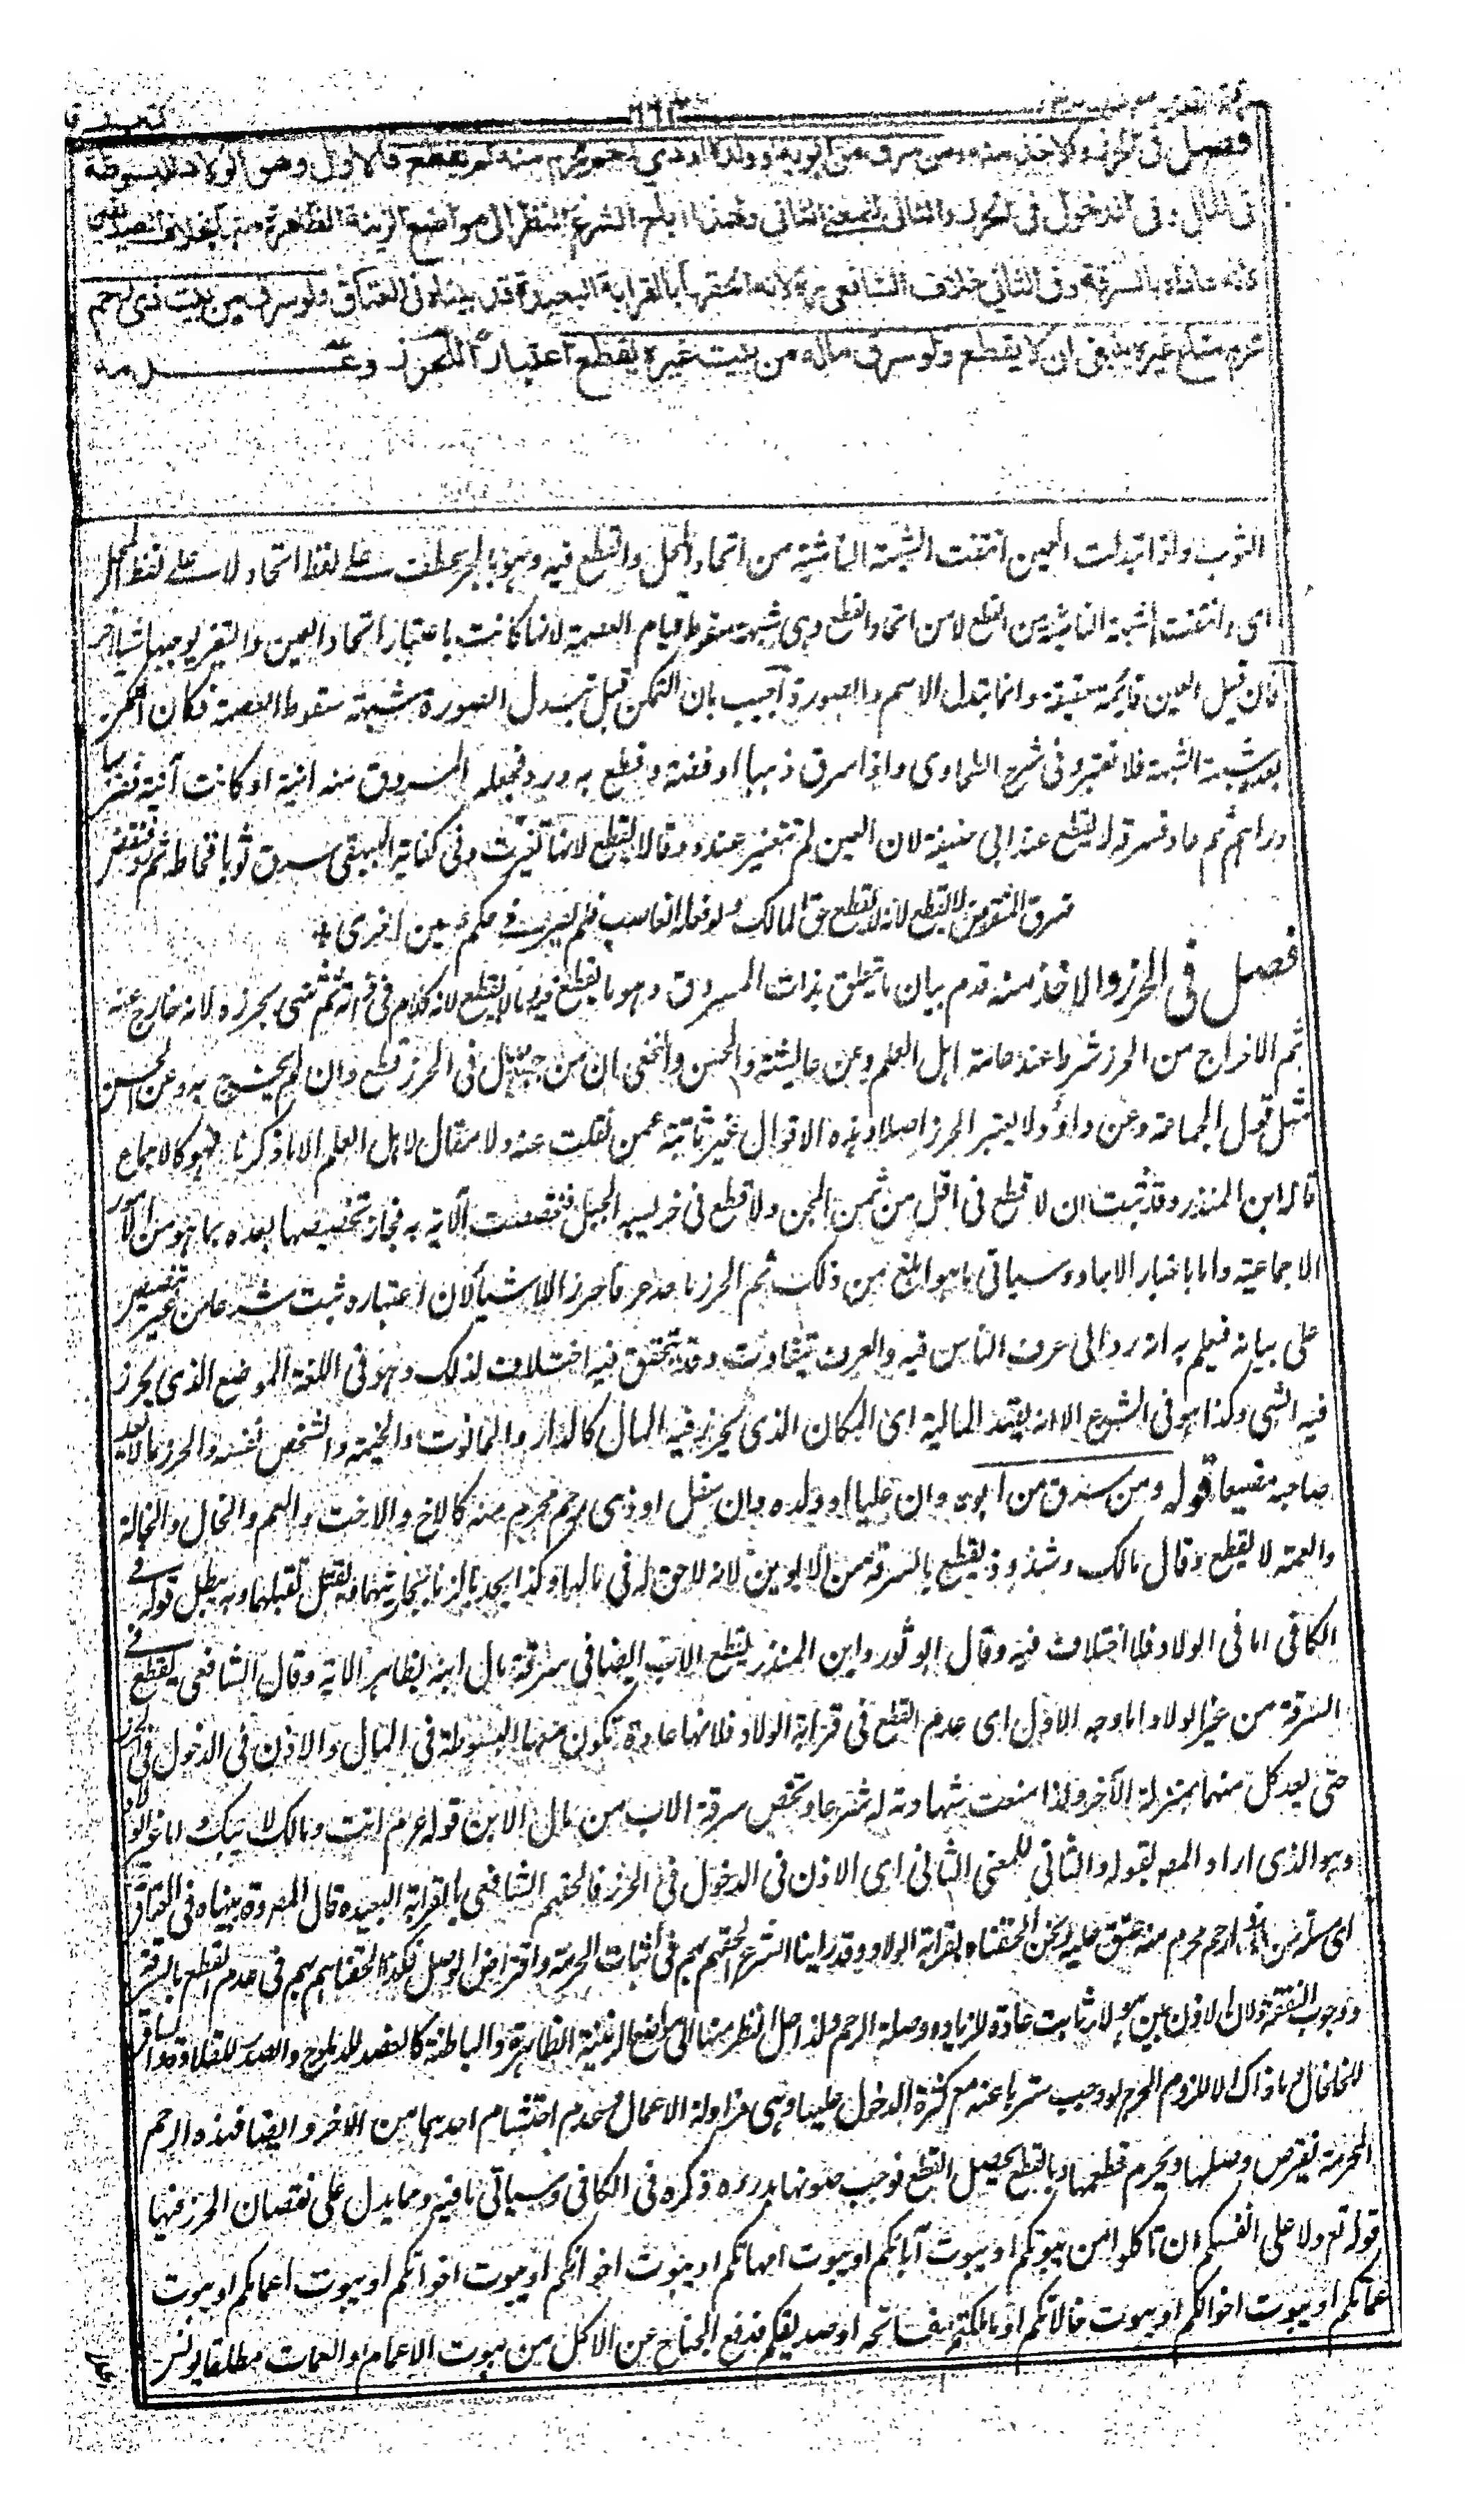 فصل فى الحرز والاخذ منه ومن سرق من ابويه او ولده او ذي رحم محرم منه لم يقطع فالاول وهى الولاد للبسوطة
فى المال وفى الدخول فى الحرز والثانى للمعنى الثانى ولهذا اباح الشرع النظر الى مواضع الزينة الظاهرة منها بخلاف الصديقين
لانه عاداه بالسرقة وفى الثانى خلاف الشافعى رح لانه الحقها بالقرابة البعيدة وقد بيناه فى العتاق ولو سرق من بيت ذى رحم
محرم متاع غيره ينبغى ان لا يقطع ولو سرق ماله من بيت غيره يقطع اعتبارا للحرز وعدمه
الثوب ولذا تبدلت العين انتفت الشبهة الناشية من اتحاد المحل والقطع فيه وهو بالجر عطف على لفظ اتحاد لا على لفظ المحل
اى وانتفت الشبهة الناشية من القطع لا من اتحاد القطع وهى شبهة سقوط قيام العصمة لانها كانت باعتبار اتحاد العين والتغير يوجبها شيا اخر
فان قيل العين قائمة حقيقة وانما تبدل الاسم والصورة اجيب بان التمكن قبل تبدل الصورة شبهة سقوط العصمة فكان التمكن
بعد شبهة الشبهة فلا تعتبر وفى شرح الطحاوى واذا سرق ذهبا او فضة وقطع به ورد فجعله المسروق منه انية او كانت آنية فضربها
دراهم ثم عاد فسرقه لا يقطع عند ابى حنيفة لان العين لم تتغير عنده وقالا يقطع لانها تغيرت وفى كفاية البيهقى سرق ثوبا فخاطه ثم رد فنقض
فسرق المنقوض لا يقطع لانه لا يقطع حق المالك لو فعله الغاصب فلم يصر فى حكم عين اخرى
فصل فى الحرز والاخذ منه قدم بيان ما يتعلق بذات المسروق وهو ما يقطع فيه وما لا يقطع لانه كلام فى ذاته ثم ثنى بحرزه لانه خارج عنه
ثم الاخراج من الحرز شرط عند عامة اهل العلم وعن عايشة والحسن والنخعى ان من جمع المال فى الحرز قطع وان لم يخرج به وعن الحسن
مثل قول الجماعة وعن داؤد لا يعتبر الحرز اصلا وهذه الاقوال غير ثابتة عمن نقلت عنه ولا مقال لاهل العلم الا ما ذكرنا فهو كالاجماع
قاله ابن المنذر وقد ثبت ان لا قطع فى اقل من ثمن المجن ولا قطع فى حريسة الجبل فتخصصت الآية به فجاز تخصيصها بعده بما هو من الامور
الاجماعية واما باخبار الاحاد وسياتى ما هو ابلغ من ذلك ثم الحرز ما عد عرفا حرز الاشياء لان اعتباره ثبت شرعا من غير تنصيص
على بيانه فيعلم به انه رد الى عرف الناس فيه والعرف يتفاوت وقد يتحقق فيه اختلاف لذلك وهو فى اللغة الموضع الذى يحرز
فيه الشى وكذا هو فى الشرع الا انه بقيد المالية اى المكان الذى يحرز فيه المال كالدار والحانوت والخيمة والشخص نفسه والحرز ما لا يعد
صاحبه مضيعا قوله ومن سرق من ابويه وان عليا او ولده وان سفل او ذى رحم محرم منه كالاخ والاخت والعم والخال والخالة
والعمة لا يقطع وقال مالك وشذوذ يقطع بالسرقة من الابوين لانه لا حق له فى مالهما وكذا يحد بالزنا بجاريتهما ويقتل بقتلهما وبه يبطل قوله فى
الكافى اما فى الولاد فلا اختلاف فيه وقال ابو ثور وابن المنذر يقطع الاب ايضا فى سرقة مال ابنه بظاهر الاية وقال الشافعى يقطع فى
السرقة من غير الولاد اما وجه الاول اى عدم القطع فى قرابة الولاد فلانها عادة تكون معها البسوطة فى المال والاذن فى الدخول فى الحرز
حتى يعد كل منهما بمنزلة الآخر ولذا منعت شهادته له شرعا وتخص سرقة الاب من مال الابن قوله عم انت ومالك لابيك واما غير الولاد
وهو الذى اراد المصه بقوله والثانى للمعنى الثانى اى الاذن فى الدخول فى الحرز فالحقهم الشافعى بالقرابة البعيدة قال المصه وقد بيناه فى العتاق
اى مسئلة من ملك ذا رحم محرم منه عتق عليه ونحن الحقناه بقرابة الولاد وقد راينا الشرع الحقهم بهم فى اثبات الحرمة وافتراض الوصل فلذا الحقناهم بهم فى عدم القطع بالسرقة
ووجوب النفقة ولان الاذن بين هولاء ثابت عادة للزيارة وصلة الرحم ولذا حل النظر منها الى مواضع الزينة الظاهرة والباطنة كالعضد للدملوج والصدر للقلادة والساق
للخلخال وما ذاك الا للزوم الحرج لو وجب سترها عنه مع كثرة الدخول عليها وهى مزاولة الاعمال وعدم احتشام احدهما من الآخر وايضا فهذه الرحم
المحرمة يفترض وصلها ويحرم قطعها وبالقطع يحصل القطع فوجب صونها بدرءه ذكره فى الكافى وسياتى ما فيه ومما يدل على نقصان الحرز فيها
قوله تع ولا على انفسكم ان تاكلوا من بيوتكم او بيوت آبائكم او بيوت امهاتكم او بيوت اخوانكم او بيوت اخواتكم او بيوت اعمامكم او بيوت
عماتكم او بيوت اخوالكم او بيوت خالاتكم او ما ملكتم مفاتحه او صديقكم فرفع الجناح عن الاكل من بيوت الاعمام والعمات مطلقا يونس